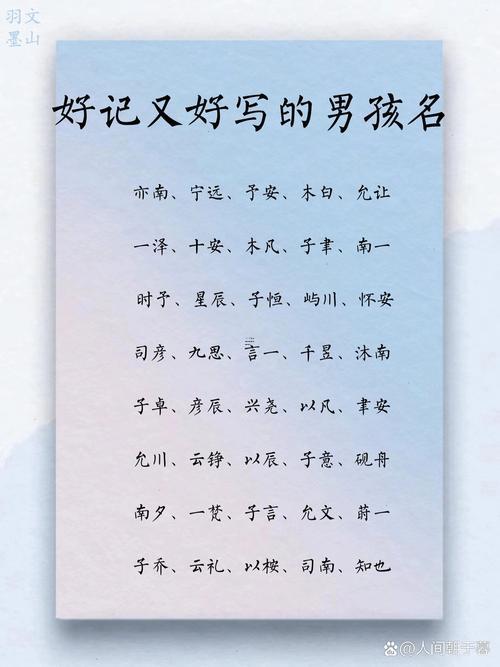 羽文
墨山
好记又好写的男孩名
亦南、宁远、予安、木白、允让
一泽、十安、木凡、子聿、南一
时予、星辰、子恒、屿川、怀安
司彦、九思、言一、千昱、沐南
子卓、彦辰、兴尧、以凡、聿安
允川、云铮、以辰、子意、砚舟
南夕、一梵、子言、允文、蔚一
子乔、云礼、以桉、司南、知也